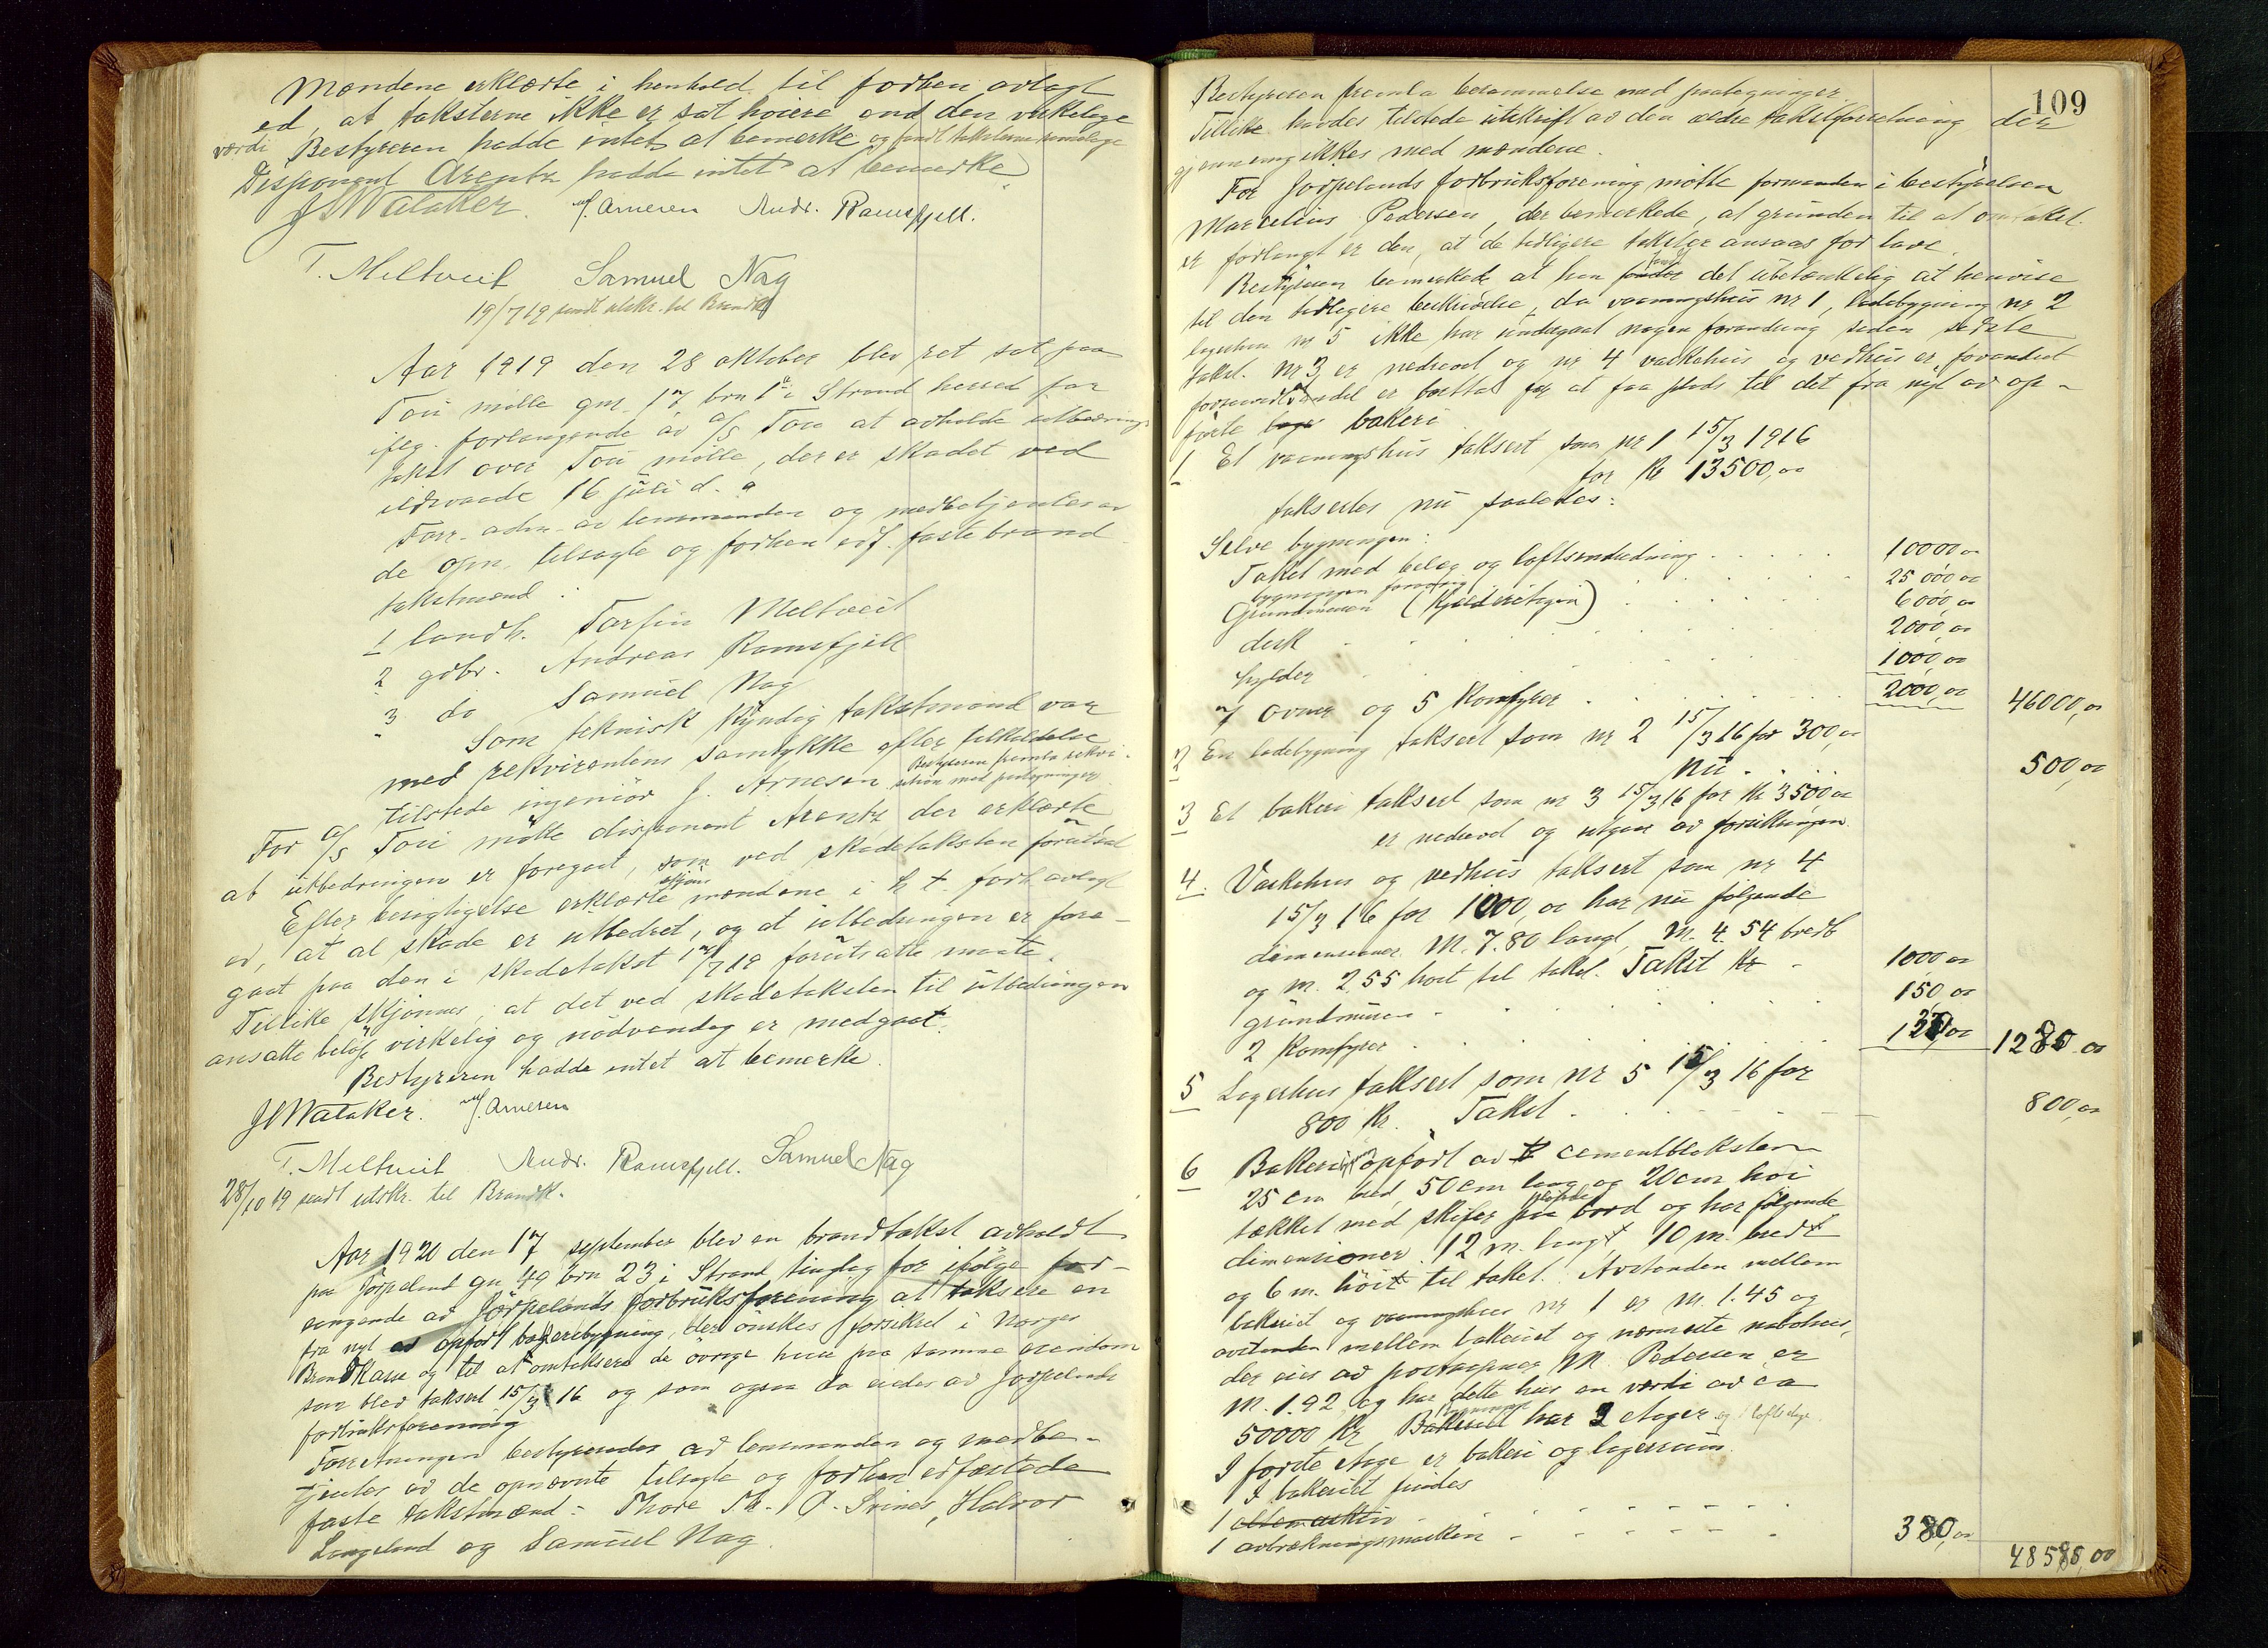 Mændene erklærte i henhold til forhen avlagt
ed, at taksterne ikke er sat høiere end den virkelige
værdi Bestyreren hadde intet at bemerke og fandt taksterne rimelige
Disponent Arentz hadde intet at bemerke
J S Wataker. J. Arnesen Andr. Ramsfjell.
T. Meltveit Samuel Nag
19/7 19 sendt utskr. til Brandk
Aar 1919 den 28 oktober blev ret sat paa
Tou mølle gnr. 17 brn 1 i Strand herred for
iflg. forlangende av a/s Tou at avholde utbedrings
takst over Tou mølle, der er skadet ved
ildsvaade 16 juli d. a
Forr. adm. av lensmanden og medbetjentes av
de opn. tilsagte og forhen edf. faste brand
takstmænd:
1 landh. Torfin Meltveit
2 gdbr. Andreas Ramsfjell
3 do Samuel Nag
Som teknisk kyndig takstmand var
med rekvirentens samtykke efter tilkaldelse
tilstede ingeniør J. Arnesen Bestyreren fremla rekvi-
sition med paategninger
For a/s Tou møtte disponent Arentz der erklærte
at utbedringen er foregaat, som ved skadetaksten forutsat
Efter besigtigelse erklærte mændene i h. t. forh. avlagt
ed, at al skade er utbedret, og at utbedringen er fore-
gaat paa den i skadetakst 17/7 19 forutsatte maate.
Tillike skjønnes, at det ved skadetaksten til utbedringen
ansatte beløp virkelig og nødvendig er medgaat.
Bestyreren hadde intet at bemerke.
J S Wataker. J. Arnesen
T. Meltveit Andr. Ramsfjell. Samuel Nag
28/10 19 sendt utskr. til Brandk.
Aar 1920 den 17 september blev en brandtakst avholdt
paa Jørpeland gn 49 brn 23 i Strand tinglag for ifølge for-
langende av Jørpelands forbruksforening at taksere en
fra nyt av opført bakeribygning, der ønskes forsikret i Norges
Brandkasse og til at omtaksere de øvrige huse paa samme eiendom
som blev taksert 15/3 16 og som ogsaa da eiedes av Jørpelands
forbruksforening
Forretningen bestyredes av lensmanden og medbe-
tjentes av de opnævnte tilsagte og forhen edfæstede
faste takstmænd: Thore Th. A. Svines, Halvor
Langeland og Samuel Nag.
109
Bestyreren fremla berammelse med paategninger.
Tillike havdes tilstede utskrift av den ældre takstforretning der
gjennemgikkes med mændene.
For Jørpelands forbruksforening møtte formanden i bestyrelsen
Marcelius Pedersen, der bemerkede, at grunden til at omtakst
er forlangt er den, at de tidligere takster ansaas for lave.
Bestyreren bemerkede at han fandt det ubetænkelig at henvise
til den tidligere beskrivelse, da vaaningshus nr 1, ladebygning nr 2
lagerhus nr 5 ikke har undergaat nogen forandring siden sidste
takst. Nr 3 er nedrevet og nr 4 vaskehus og vedhus er forandret
forsaavidt en del er borttat for at faa plads til det fra nyt av op-
førte bakeri
1 Et vaaningshus taksert som nr 1 15/3 1916
for Kr 13500,00
takseres nu saaledes:
Selve bygningen:
Taket med belæg og loftsindredning . . . . 10000 00
bygningen forøvrig . . . . 25 000 00
Grundmuren (Kjelderetagen) . . . . 6000,00
disk . . . . 2000,00
hylder . . . . 1000,00
7 ovner og 5 Komfyrer . . . . 2000,00 46000,00
2 En ladebygning taksert som nr 2 15/3 16 for 300,00
nu . . . . 500,00
3 Et bakeri taksert som nr 3 15/3 16 for Kr 3500 00
er nedrevet og utgaar av forsikringen.
4. Vaskehus og vedhus taksert som nr 4
15/3 16 for 1000,00 har nu følgende
dimensioner. M. 7.80 langt, M. 4.54 bredt
og M. 2.55 høit til taket. Takst Kr - 1000 00
grundmuren - 150 00
2 Komfyrer . . . . 130,00 1280 00
5 Lagerhus taksert som nr 5 15/3 16 for
800 Kr. Takst . . . . 800,00
6 Bakeri opført av cementbloksten
25 cm bred, 50 cm lang og 20 cm høi
tækket med skifer paa bord og har følgende
dimensioner: 12 m. langt 10 m. bredt
og 6 m. høit til taket. Avstanden mellem
bakeriet og vaaningshus nr 1 er M. 1.45 og
avstanden mellem bakeriet og nærmeste nabohus,
der eies av postaapner M. Pedersen er
M. 1.92 og har dette hus en værdi av ca
50000 Kr Bakeriet har 2 etager og loftsetage.
I første etage er bakeri og lagerrum.
I bakeriet findes
1 eltemaskin
1 avbrækningsmaskin - 380,00
48580,00